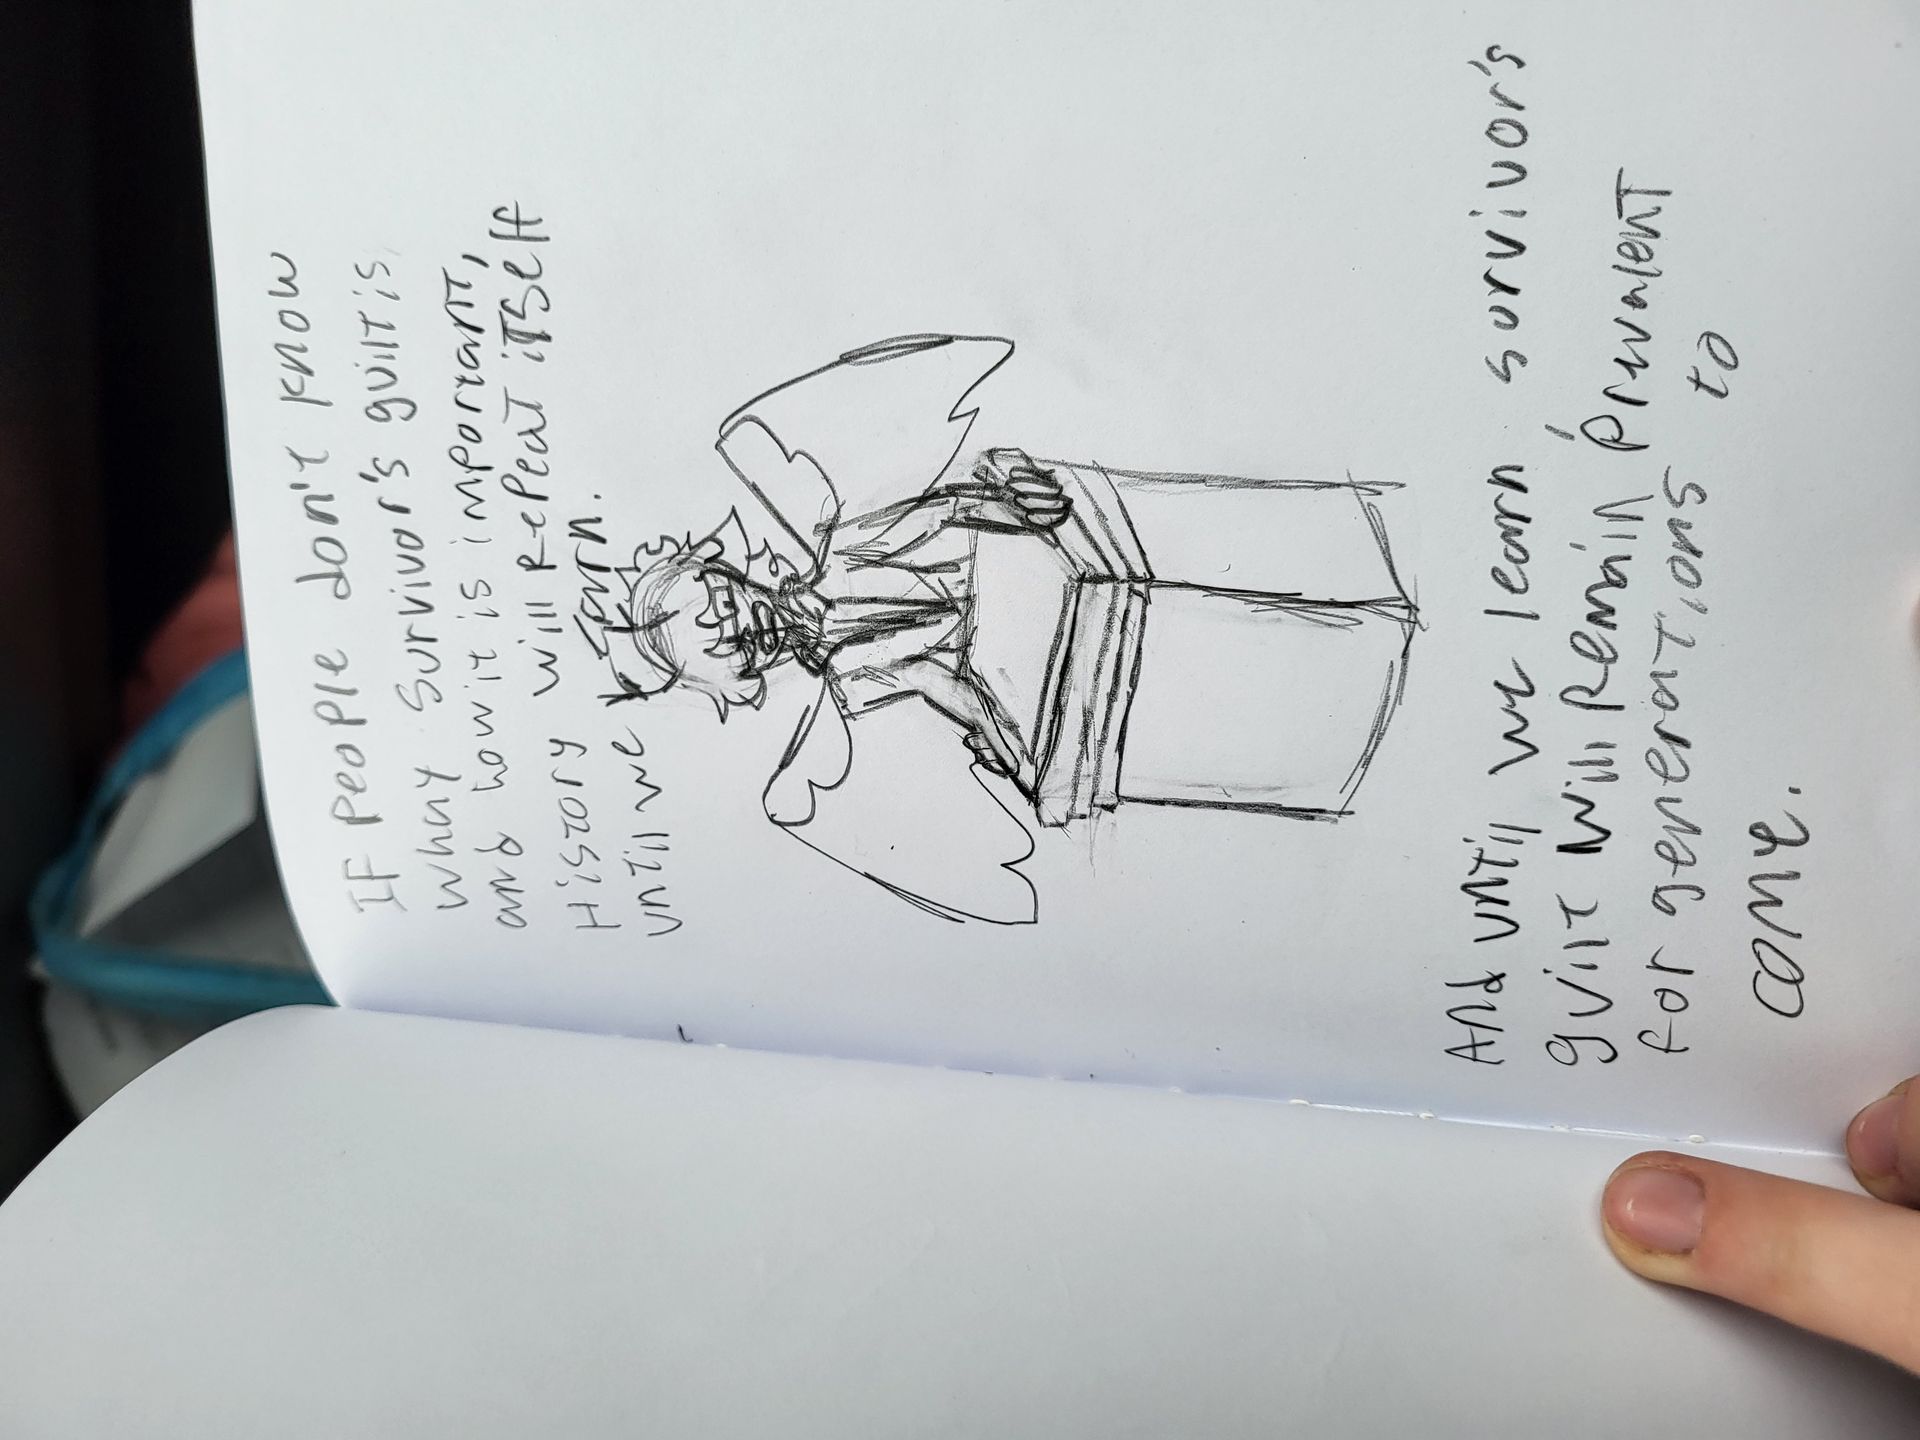 IF people don't know
whay survivor's guilt is,
and how it is important,
History will repeat itself
until we learn.
And until we learn sorvivor's
guilt will remain prevalent
for generations to
come.